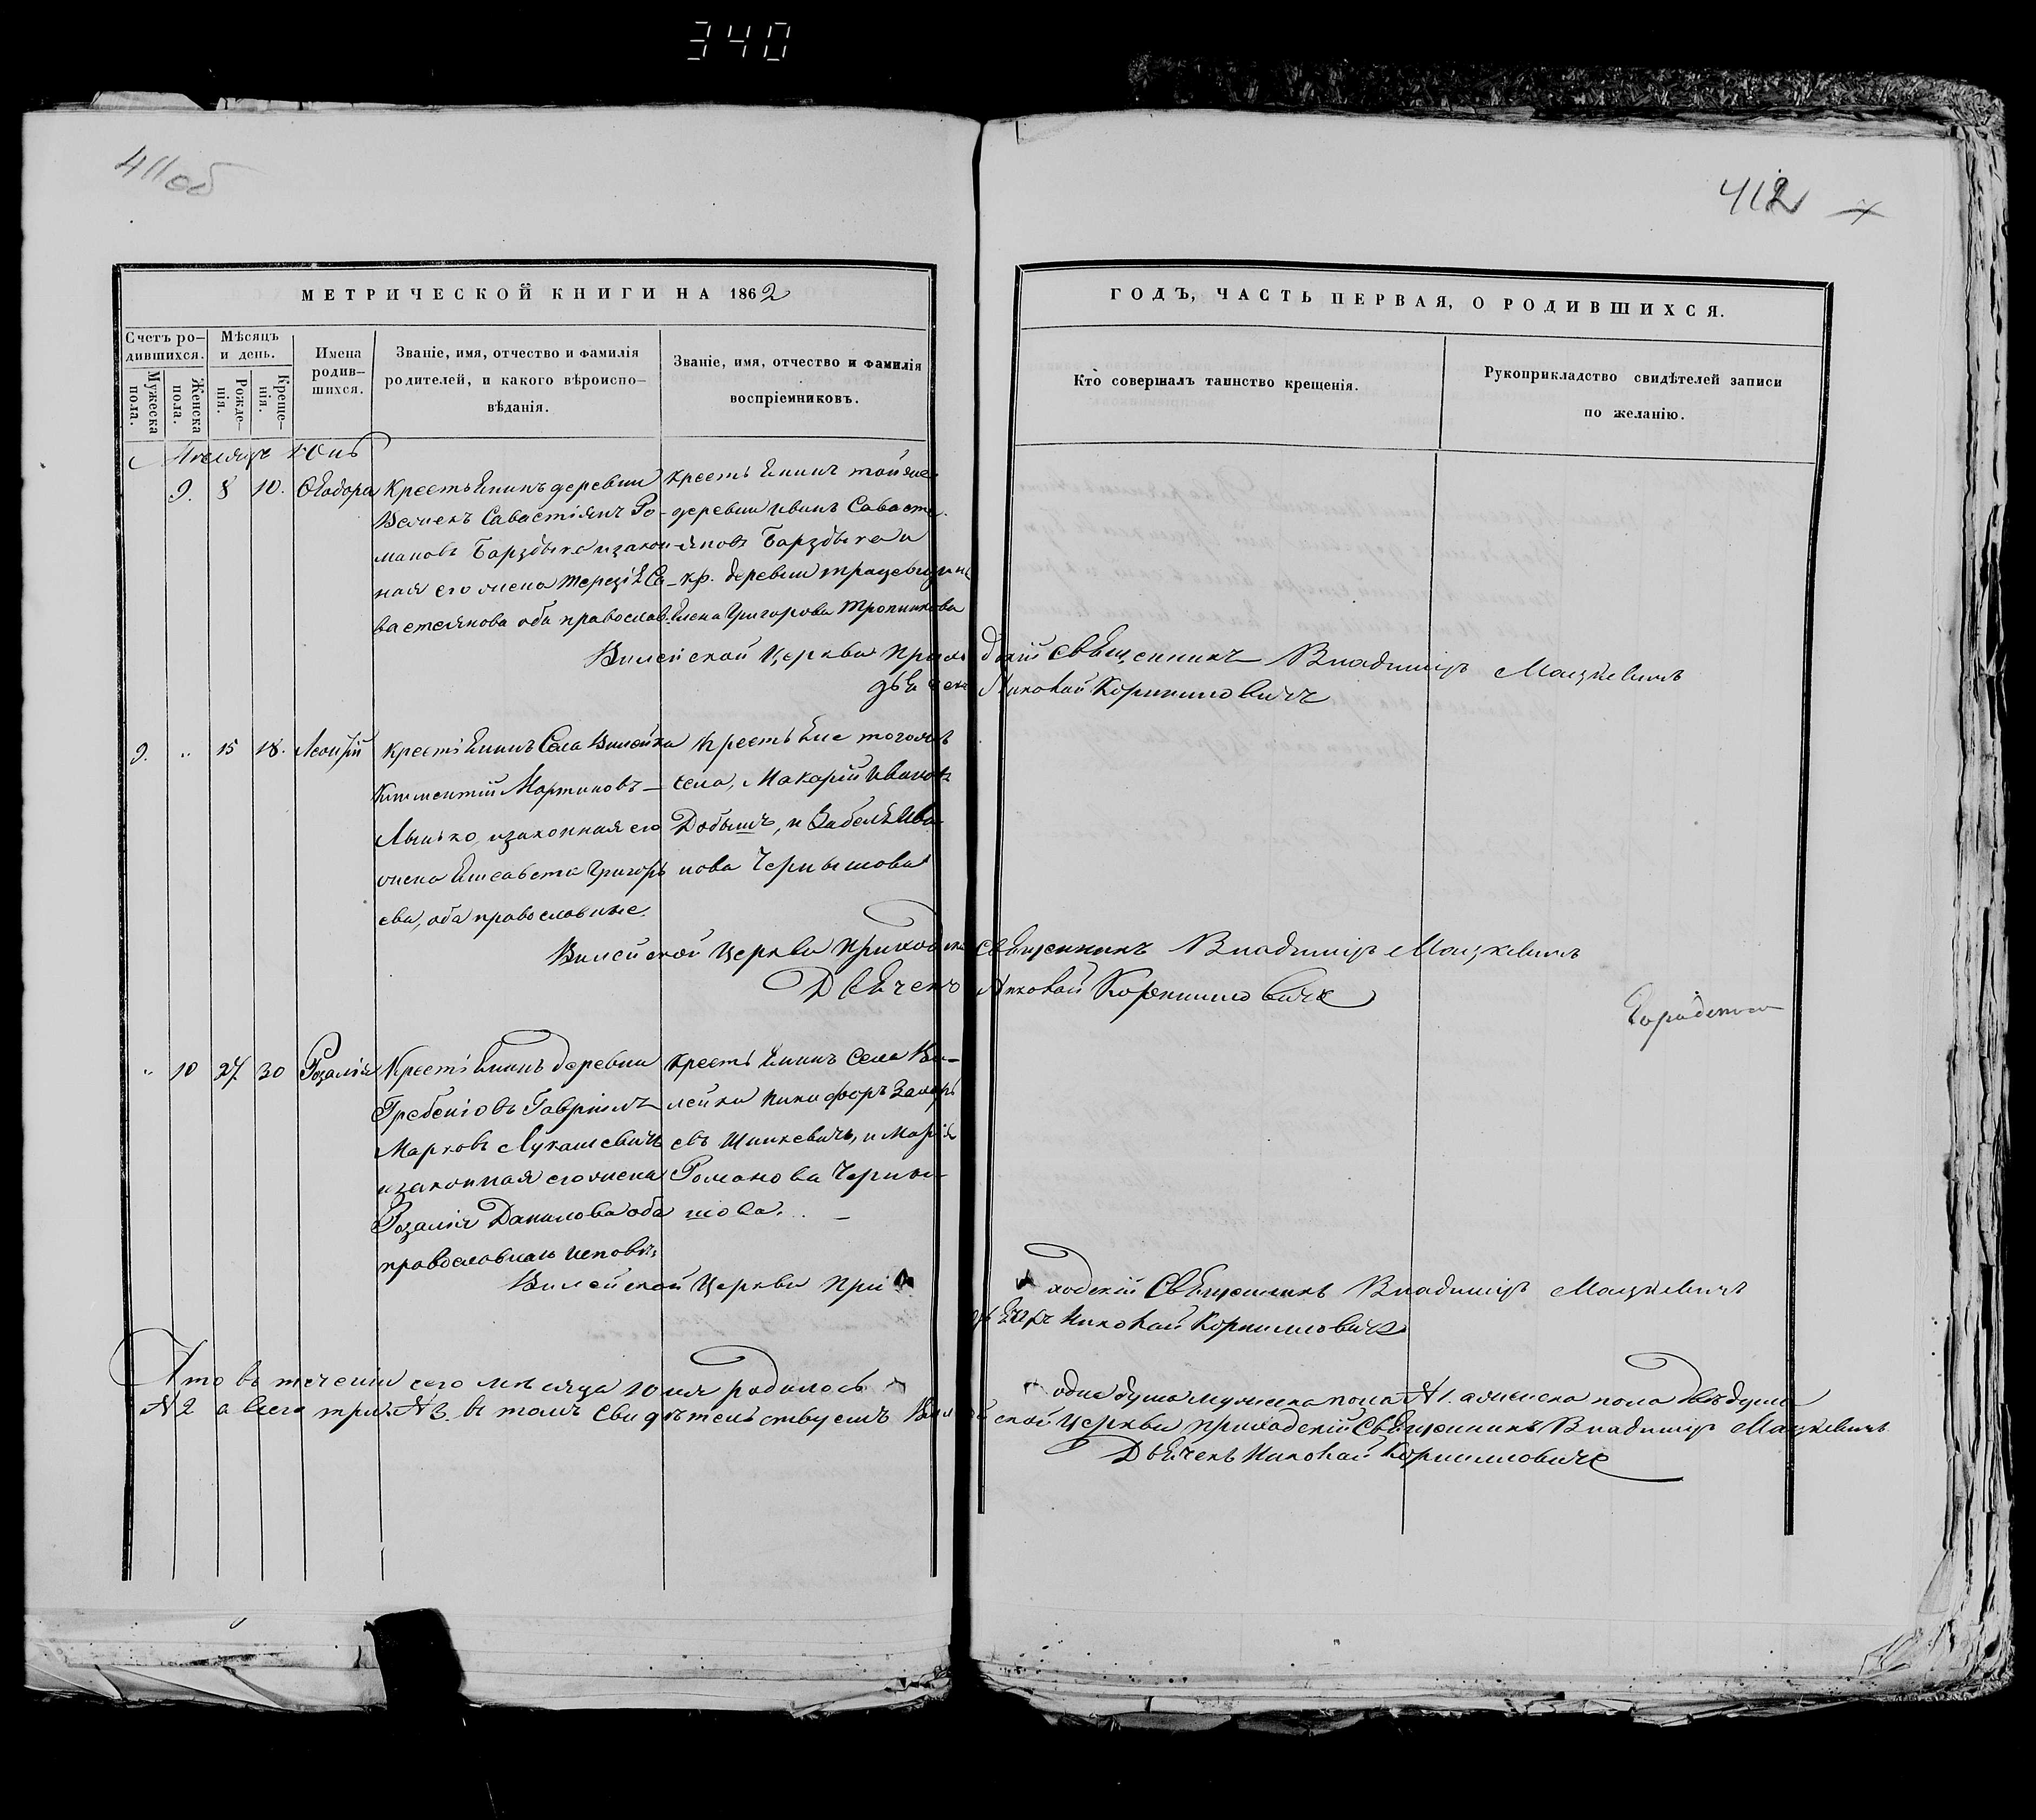 340
411об
412
МЕТРИЧЕСКОЙ КНИГИ НА 1862
Счетъ ро-
дившихся.
Мужеска
пола.
Женска
пола.
Мѣсяцъ
и день.
Рожде-
нія.
Креще-
нія.
Имена
родив-
шихся.
Званіе, имя, отчество и фамилія
родителей, и какого вѣроиспо-
вѣданія.
Званіе, имя, отчество и фамилія
воспріемниковъ.
ГОДЪ, ЧАСТЬ ПЕРВАЯ, О РОДИВШИХСЯ.
Кто совершалъ таинство крещенія.
Рукоприкладство свидѣтелей записи
по желанію.
Мѣсяцъ Юнь
9. 8 10. Ѳеодора
Крестьянинъ деревни
Савастіянъ Ро-
мановъ Барздыко и закон-
ная его жена Терезія Са-
вастеянова оба православ.
Крестьянинъ той же
деревни Иванъ Савасте-
яновъ Барздыко и
кр. деревни
Елена Григорова Тропинкова
Вилейской Церкви Приходскій Священникъ Владиміръ Мацкевичъ
Дьячекъ Николай Корниловичъ
9. „ 15 18. Леонтій
Крестіянинъ Села Вилейка
Климентій Мартиновъ
Лынько, и законная его
жена Елисавета Григорь
ева, оба православные.
Крестьяне тогожъ
села, Макарій Ивановъ
Добышъ, и Забеля Ива
нова Чернышова
Вилейской Церкви Приходскій Священникъ Владиміръ Мацкевичъ
Дьячекъ Николай Корниловичъ
„ 10 27. 30 Розалія
Крестіянинъ деревни
Гребеніовъ Гавріилъ
Марковъ Лукашевичъ
и законная его жена
Розалія Данилова оба
православнаго исповѣ.
Крестьянинъ Села Ви-
лейки Никифоръ Захарь
евъ Шинкевичъ, и Марія
Романова Черны-
шова.
Вилейской Церкви Приходскій Священникъ Владиміръ Мацкевичъ
Дьячекъ Николай Корниловичъ
Что въ теченіи сего мѣсяца Юня родилось одна душа мужеска пола № 1. а женска пола двѣ души
№ 2 а всего три № 3. въ томъ свидѣтельствуемъ Вилейской Церкви Приходскій Священникъ Владиміръ Мацкевичъ
Дьячекъ Николай Корниловичъ